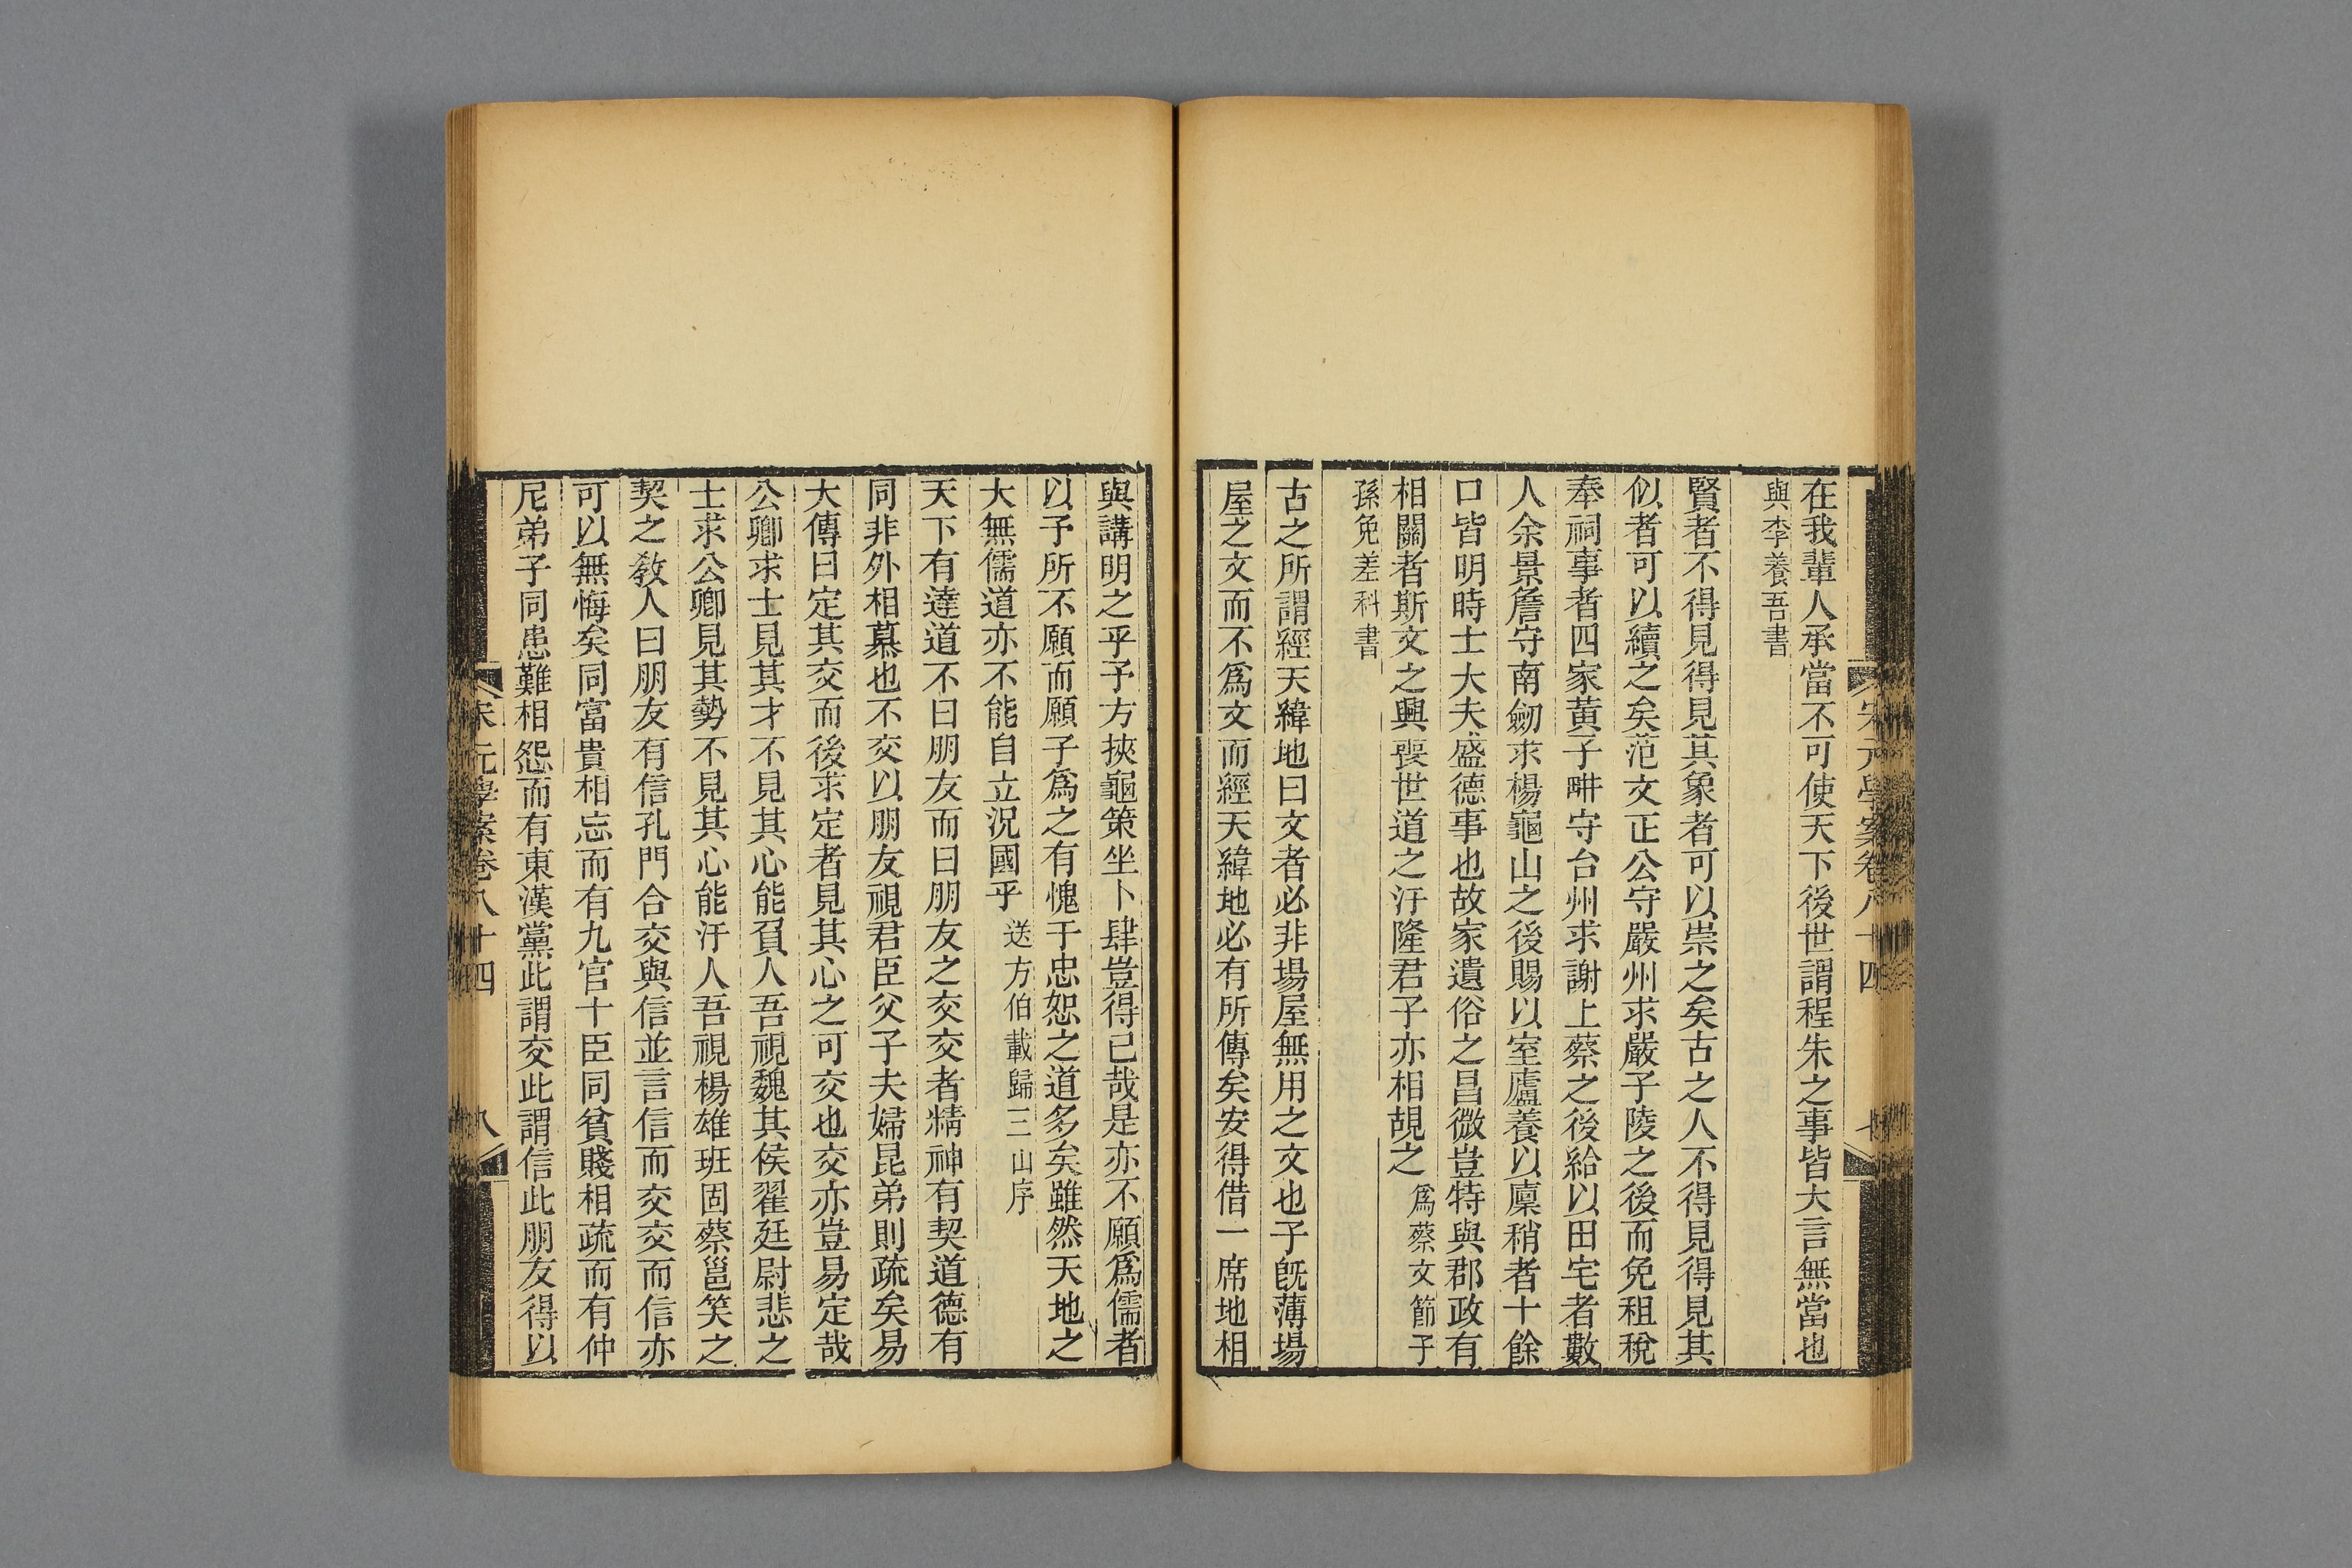 宋元學案卷八十四
七
在我輩人承當不可使天下後世謂程朱之事皆大言無當也
與李養吾書
賢者不得見得見其象者可以崇之矣古之人不得見得見其
似者可以續之矣范文正公守嚴州求嚴子陵之後而免租稅
奉祠事者四家黄子畊守台州求謝上蔡之後給以田宅者數
人余景詹守南劒求楊龜山之後賜以室廬養以廩稍者十餘
口皆明時士大夫盛德事也故家遺俗之昌微豈特與郡政有
相關者斯文之興喪世道之汙隆君子亦相覘之爲蔡文節子
孫免差科書
古之所謂經天緯地曰文者必非場屋無用之文也子旣薄場
屋之文而不爲文而經天緯地必有所傳矣安得借一席地相
與講明之乎予方挾龜策坐卜肆豈得已哉是亦不願爲儒者
以予所不願而願子爲之有愧于忠恕之道多矣雖然天地之
大無儒道亦不能自立況國乎送方伯載歸三山序
天下有達道不曰朋友而曰朋友之交交者精神有契道德有
同非外相慕也不交以朋友視君臣父子夫婦昆弟則疏矣易
大傳曰定其交而後求定者見其心之可交也交亦豈易定哉
公卿求士見其才不見其心能負人吾視魏其侯翟廷尉悲之
士求公卿見其勢不見其心能汙人吾視楊雄班固蔡邕笑之
契之敎人曰朋友有信孔門合交與信並言信而交交而信亦
可以無悔矣同富貴相忘而有九官十臣同貧賤相疏而有仲
尼弟子同患難相怨而有東漢黨此謂交此謂信此朋友得以
宋元學案卷八十四
八